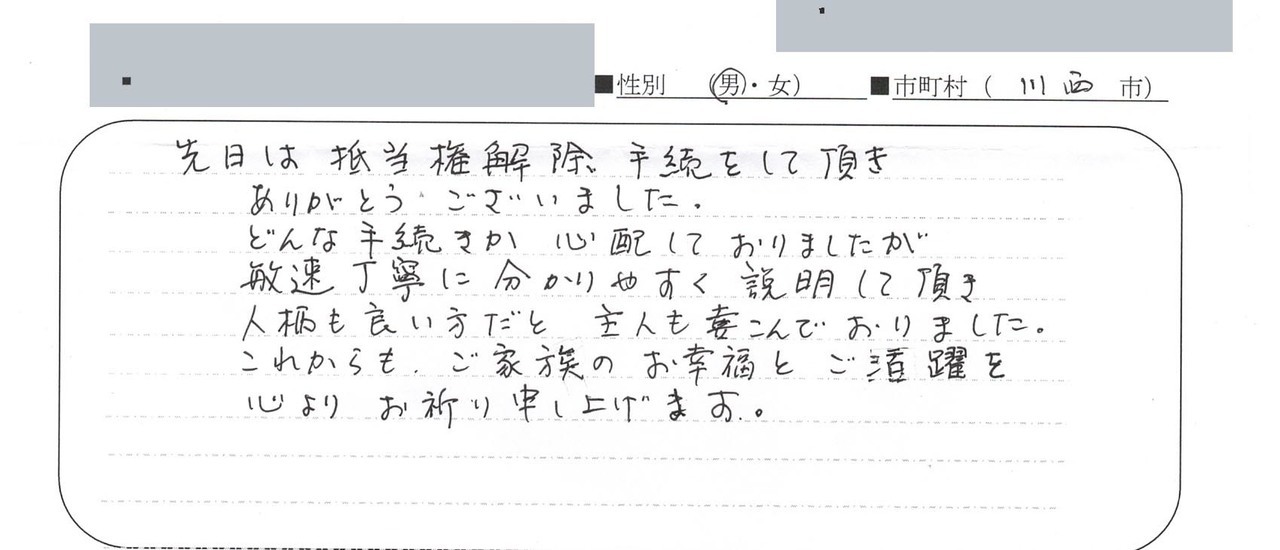 ■性別 (男・女) ■市町村 ( 川西 市)
先日は 抵当権解除 手続をして頂き
ありがとう ございました.
どんな手続きか 心配しておりましたが
敏速 丁寧に 分かりやすく 説明して頂き
人柄も良い方だと 主人も喜こんでおりました。
これからも. ご家族の お幸福と ご活躍を
心より お祈り申し上げます。